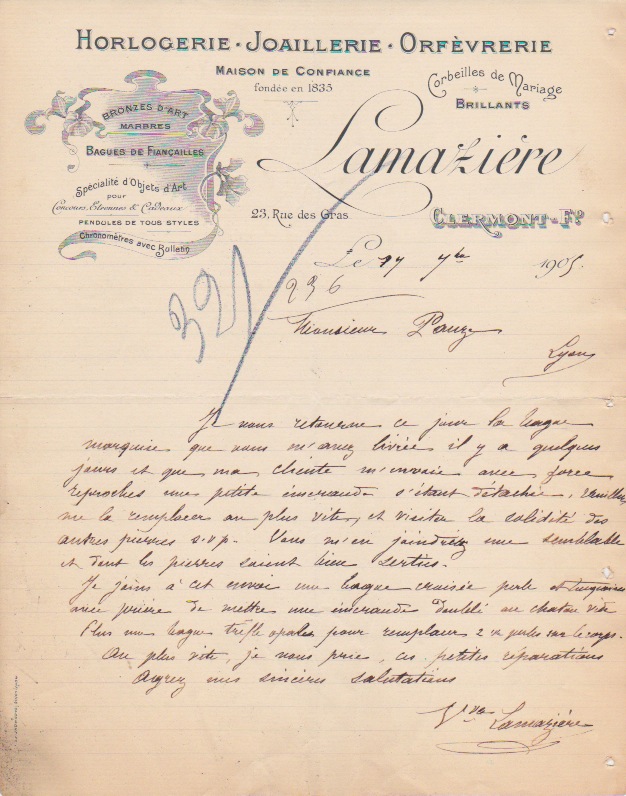 HORLOGERIE · JOAILLERIE · ORFÈVRERIE
MAISON DE CONFIANCE
fondée en 1835
Corbeilles de Mariage
BRILLANTS
BRONZES D'ART
MARBRES
BAGUES DE FIANÇAILLES
Spécialité d'Objets d'Art
pour
Concours, Etrennes & Cadeaux
PENDULES DE TOUS STYLES
Chronomètres avec Bulletin
Lamazière
23, Rue des Gras
CLERMONT-Fd
Le 17 7bre 1905.
236
321
Monsieur
Lyon
Je vous retourne ce jour la bague
marquise que vous m'avez livrée il y a quelques
jours et que ma cliente m'envoie avec force
reproches une petite émeraude s'étant détachée, veuillez
me la remplacer au plus vite, et visiter la solidité des
autres pierres s.v.p. Vous m'en joindrez une semblable
et dont les pierres soient bien serties.
Je joins à cet envoi une bague croisée perle et
avec prière de mettre une émeraude doublé au chaton vide
Plus une bague trèfle opales pour remplacer 2 perles sur le corps.
Au plus vite, je vous prie, ces petites réparations
Agréez mes sincères salutations
Vve Lamazière